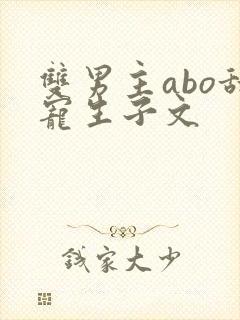 雙男主abo甜
寵生子文
錢家大少